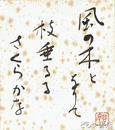 風の木と
なりて
枝垂るる
さくらかな